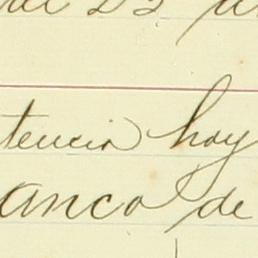 23
tencia hoy
anco de